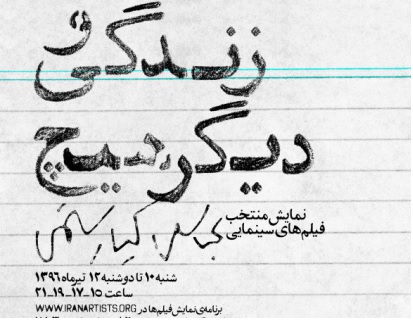 زندگی و
دیگر هیچ
نمایش منتخب
فیلم‌های سینمایی
عباس کیارستمی
شنبه ۱۰ تا دوشنبه ۱۲ تیرماه ۱۳۹۶
ساعت ۱۵-۱۷-۱۹-۲۱
برنامه‌ی نمایش فیلم‌ها در WWW.IRANARTISTS.ORG